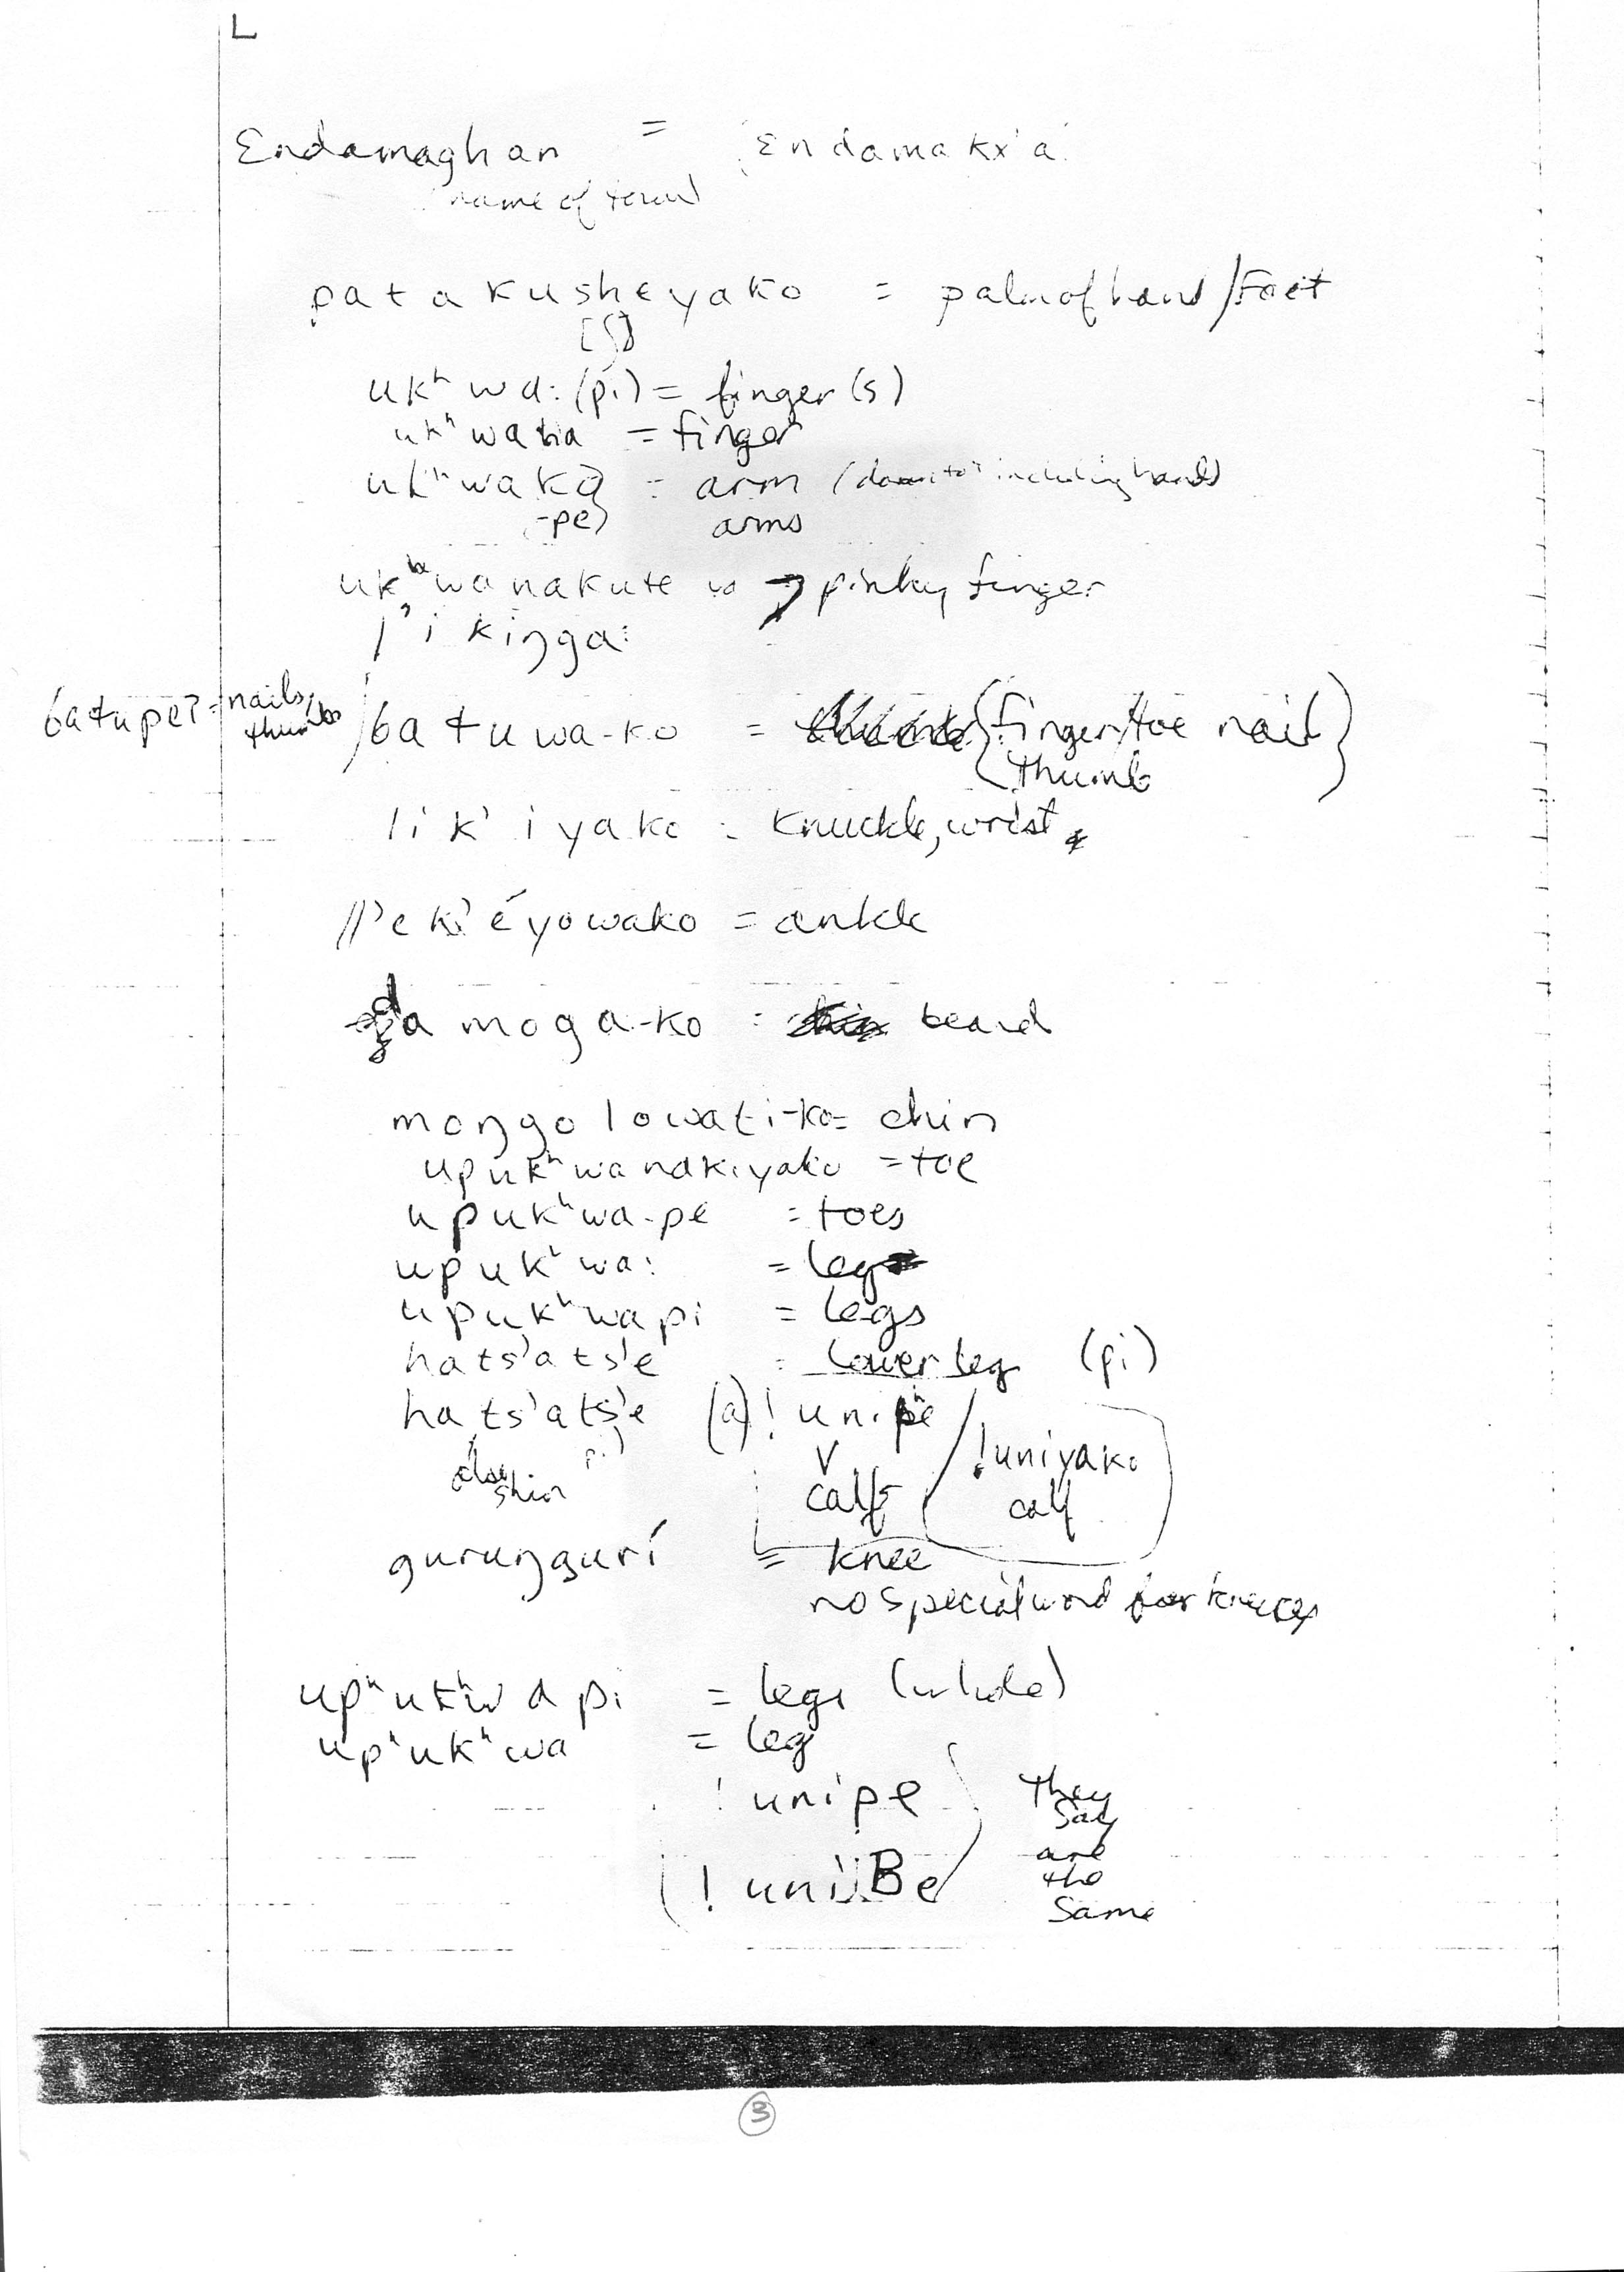 L
Endamaghan = Endamakx'a
name of town
patakusheyako = palm of hand/Foot
[ʃ]
ukʰwa:(pi) = finger(s)
= finger
ukʰwako = arm (down to including hand)
-pe) arms
ukʰwanakute → pinky finger
|'ikiŋga:
batupe? = nails/
thumbs
batuwa-ko = {finger/toe nail}
thumb
lik'iyako = knuckle, wrist
||'ek'éyowako = ankle
damoga-ko = beard
moŋgolowati-ko = chin
upukʰwanakiyako = toe
upukʰwa-pe = toes
upukʰwa: = leg
upukʰwapi = legs
hats'ats'e = lower leg (pi)
hats'ats'e (a) !unipe / !uniyako
also shin pi) calf calf
guruŋgurí = knee
no special word for knees
upʰukʰwapi = legs (whole)
upʰukʰwa = leg
!unipe } They
say
are
(!uniBe the
same
3